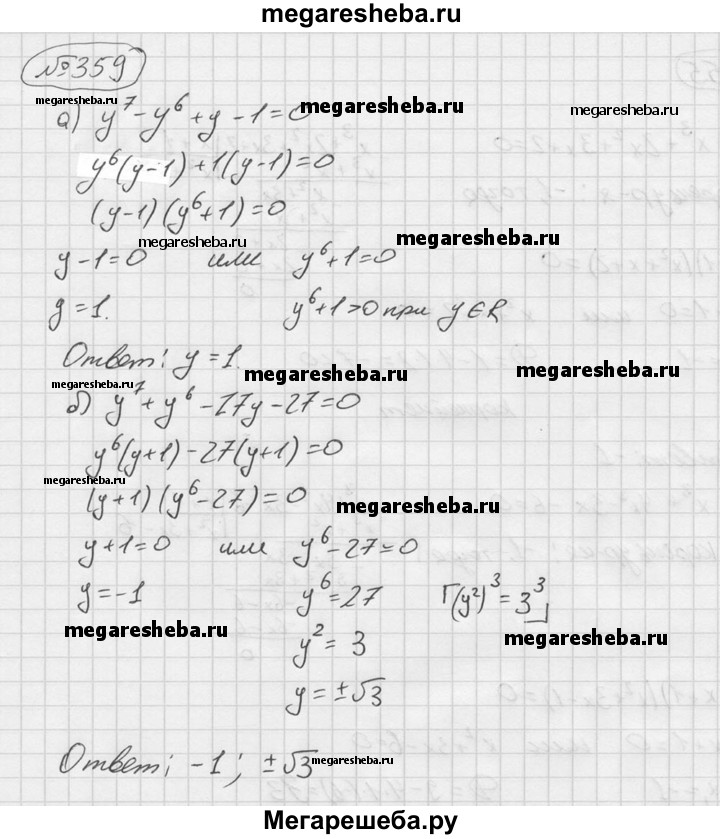 megaresheba.ru
№359
megaresheba.ru
а) y⁷ - y⁶ + y - 1 = 0
megaresheba.ru
megaresheba.ru
y⁶(y-1) + 1(y-1) = 0
(y-1)(y⁶+1) = 0
megaresheba.ru
megaresheba.ru
y - 1 = 0 или y⁶+1 = 0
y = 1. y⁶+1 > 0 при y ∈ R
Ответ: y = 1.
megaresheba.ru
megaresheba.ru
megaresheba.ru
б) y⁷ + y⁶ - 27y - 27 = 0
y⁶(y+1) - 27(y+1) = 0
megaresheba.ru
(y+1)(y⁶-27) = 0
megaresheba.ru
y+1 = 0 или y⁶-27 = 0
y = -1 y⁶ = 27 Г(y²)³ = 3³
megaresheba.ru
megaresheba.ru
y² = 3
y = ±√3
Ответ: -1; ±√3
megaresheba.ru
Мегарешеба.ру